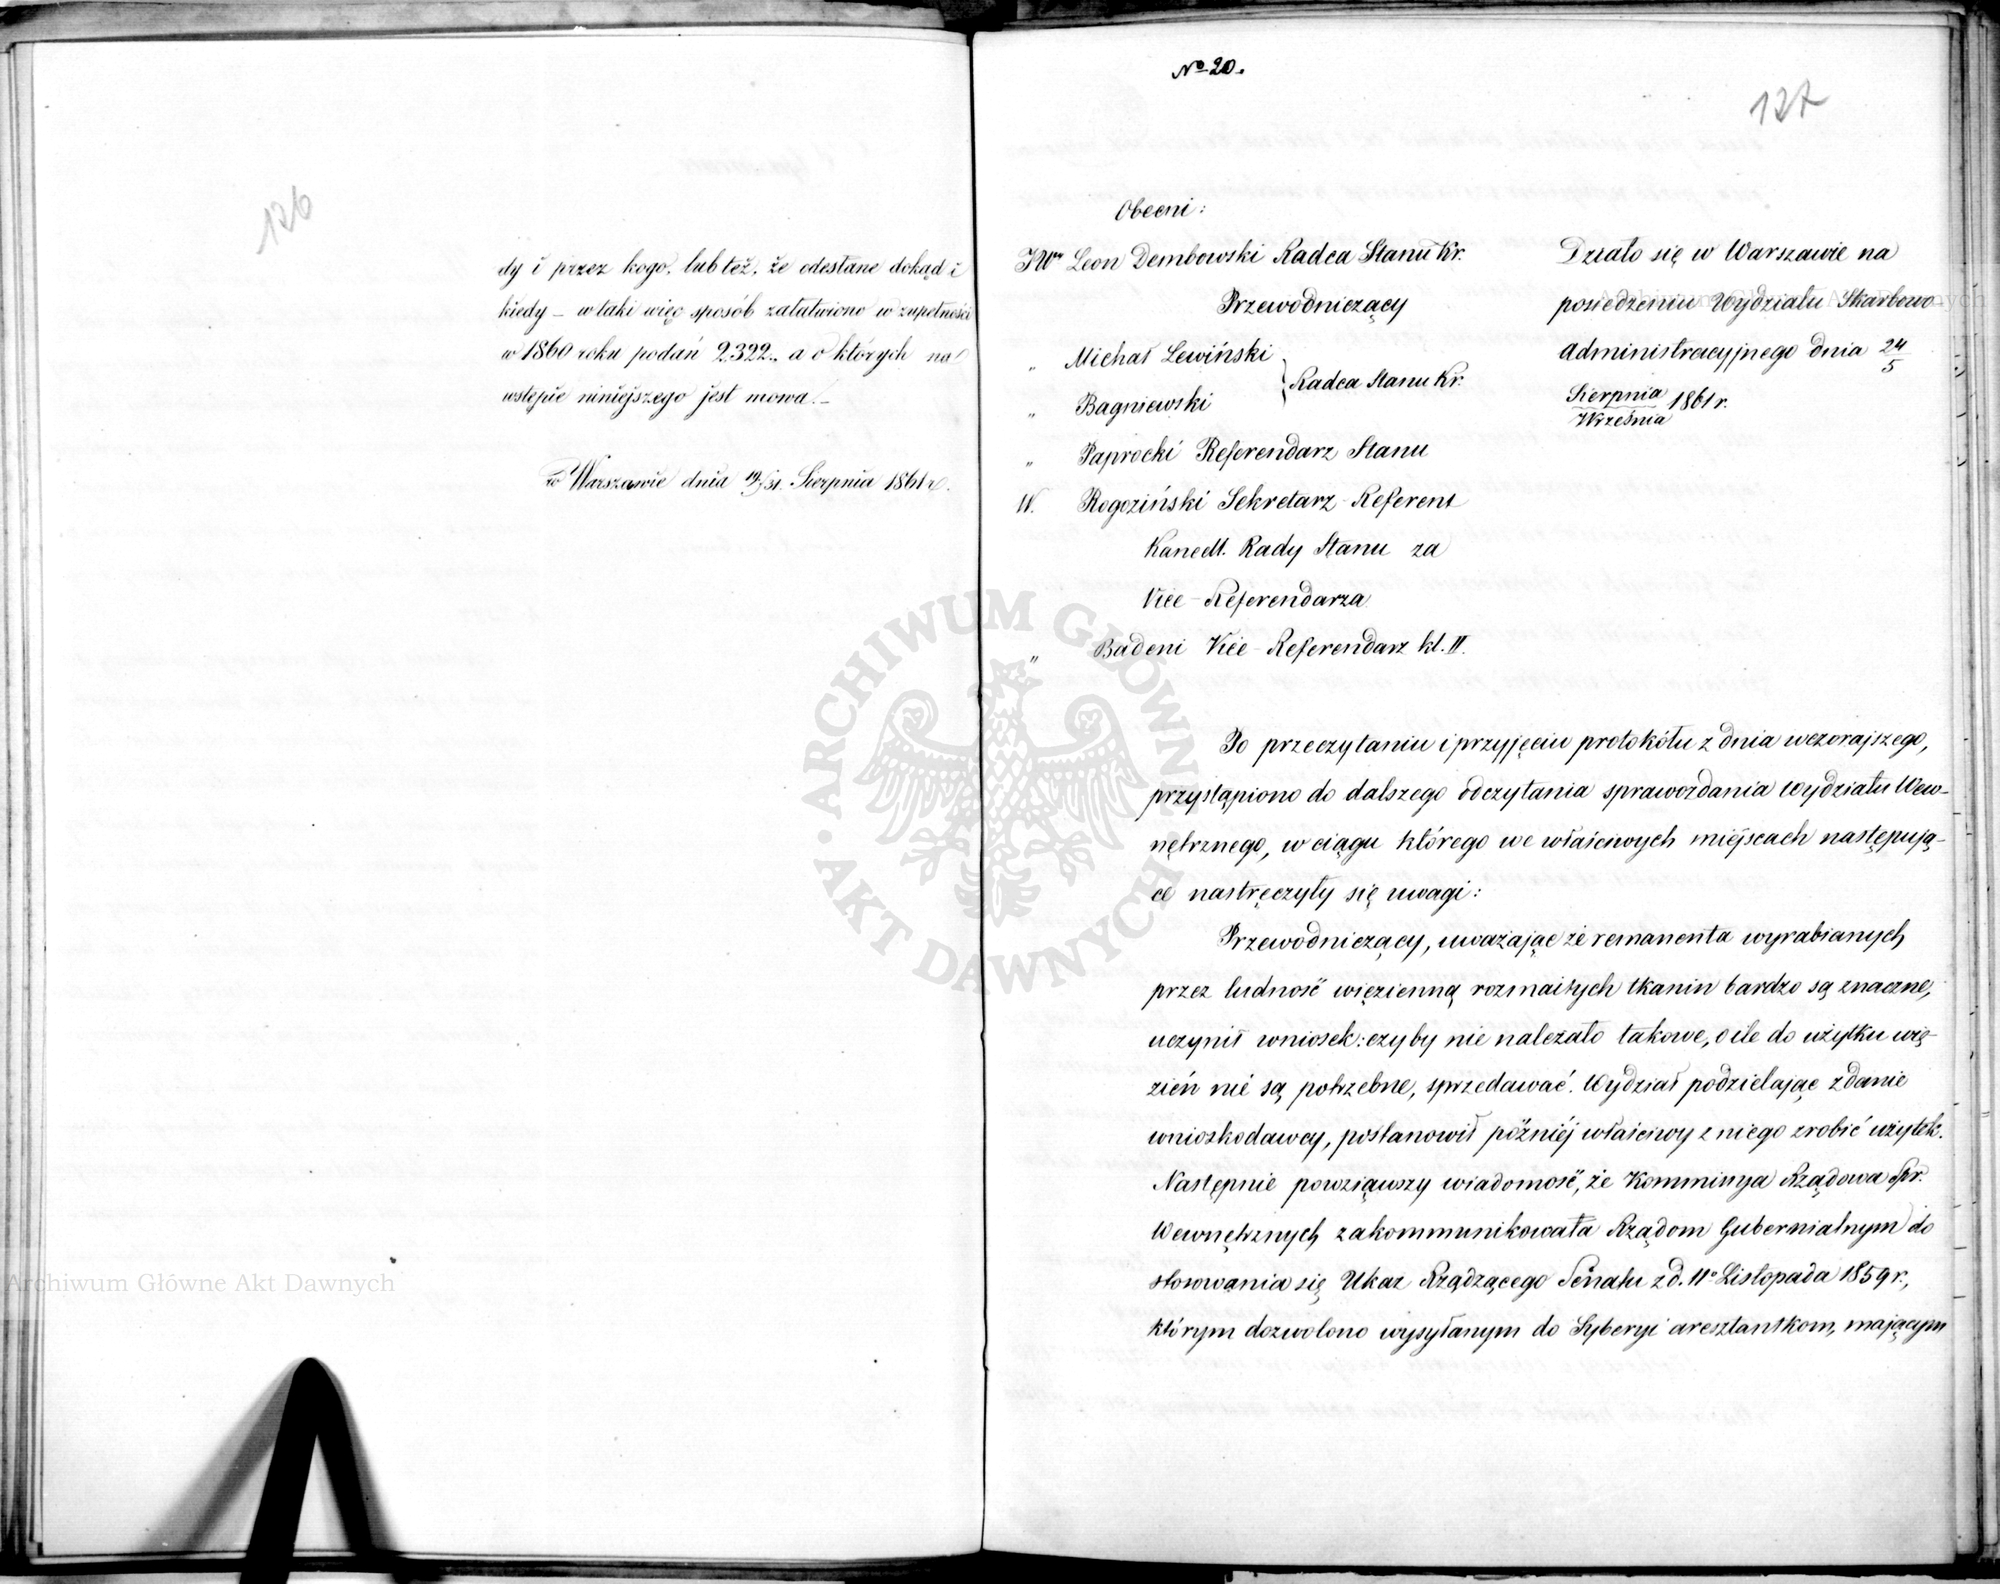 126
dy i przez kogo, lub też, że odesłane dokąd i
kiedy – w taki więc sposób załatwiono w zupełności
w 1860 roku podań 2322., a o których na
wstępie niniejszego jest mowa. –
w Warszawie dnia 19/31. Sierpnia 1861 r.
No 20.
127
Obecni:
JWny Leon Dembowski Radca Stanu Kr.
Przewodniczący
„ Michał Lewiński
„ Bagniewski
Radca Stanu Kr.
„ Paprocki Referendarz Stanu
W. Rogoziński Sekretarz-Referent
Kancell. Rady Stanu za
Vice-Referendarza
„ Badeni Vice-Referendarz kl. II.
Działo się w Warszawie na
posiedzeniu Wydziału Skarbowo
Administracyjnego dnia 24/5
Sierpnia/Września 1861 r.
Po przeczytaniu i przyjęciu protokółu z dnia wczorajszego,
przystąpiono do dalszego odczytania sprawozdania Wydziału Wew-
nętrznego, w ciągu którego we właściwych miejscach następują-
ce nastręczyły się uwagi:
Przewodniczący, uważając że remanenta wyrabianych
przez ludność więzienną rozmaitych tkanin bardzo są znaczne,
uczynił wniosek: czyby nie należało takowe, o ile do użytku wię-
zień nie są potrzebne, sprzedawać. Wydział podzielając zdanie
wnioskodawcy, postanowił później właściwy z niego zrobić użytek.
Następnie powziąwszy wiadomość, że Kommissya Rządowa Spr.
Wewnętrznych zakommunikowała Rządom Gubernialnym do
stosowania się Ukaz Rządzącego Senatu z d. 11o Listopada 1859 r.,
którym dozwolono wysyłanym do Syberyi aresztantkom, mającym
ARCHIWUM GŁÓWNE · AKT DAWNYCH ·
Archiwum Główne Akt Dawnych
Archiwum Główne Akt Dawnych